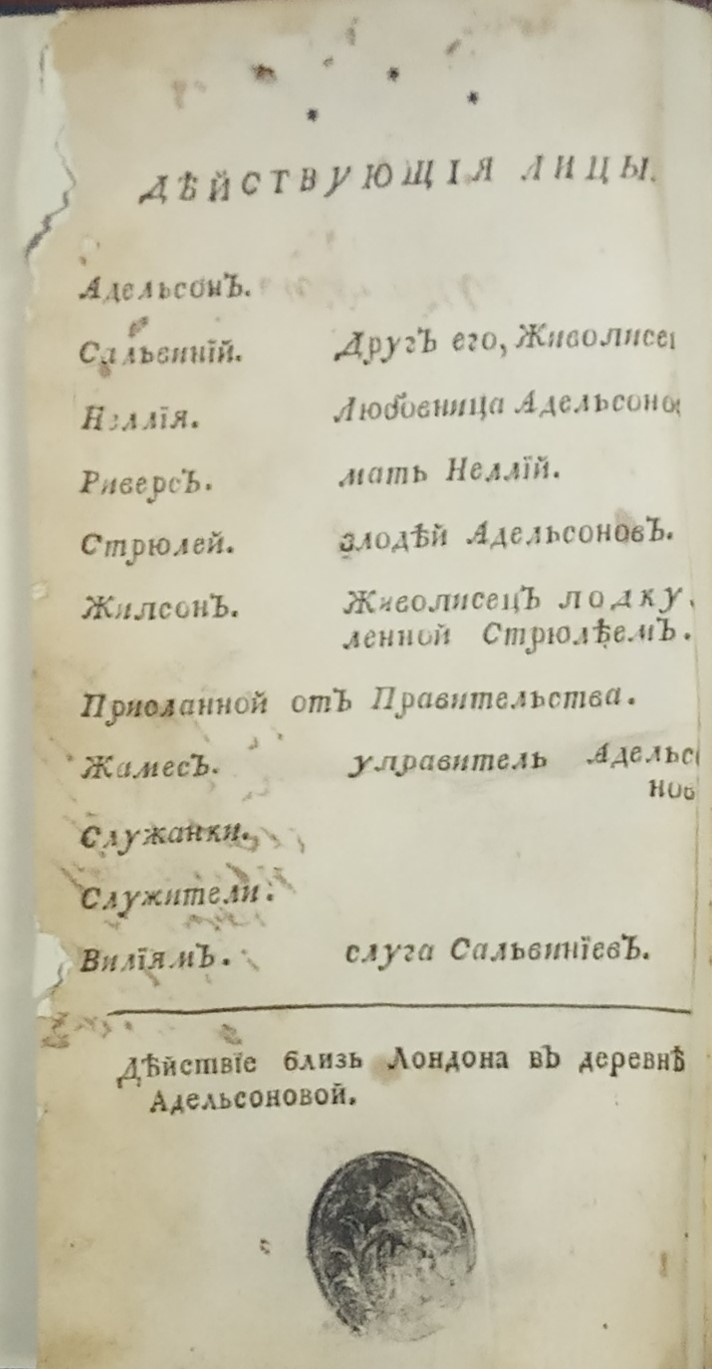 ДѢЙСТВУЮЩІЯ ЛИЦЫ.
Адельсонъ.
Сальвинїй. Другъ его, Живописец
Неллїя. Любовница Адельсонов
Риверсъ. мать Неллїй.
Стрюлей. злодѣй Адельсоновъ.
Жилсонъ. Живописецъ подку
ленной Стрюлѣемъ.
Присланной отъ Правительства.
Жамесъ. управитель Адельсо
нов
Служанки.
Служители.
Вилїямъ. слуга Сальвинїевъ.
Дѣйствїе близь Лондона въ деревнѣ
Адельсоновой.